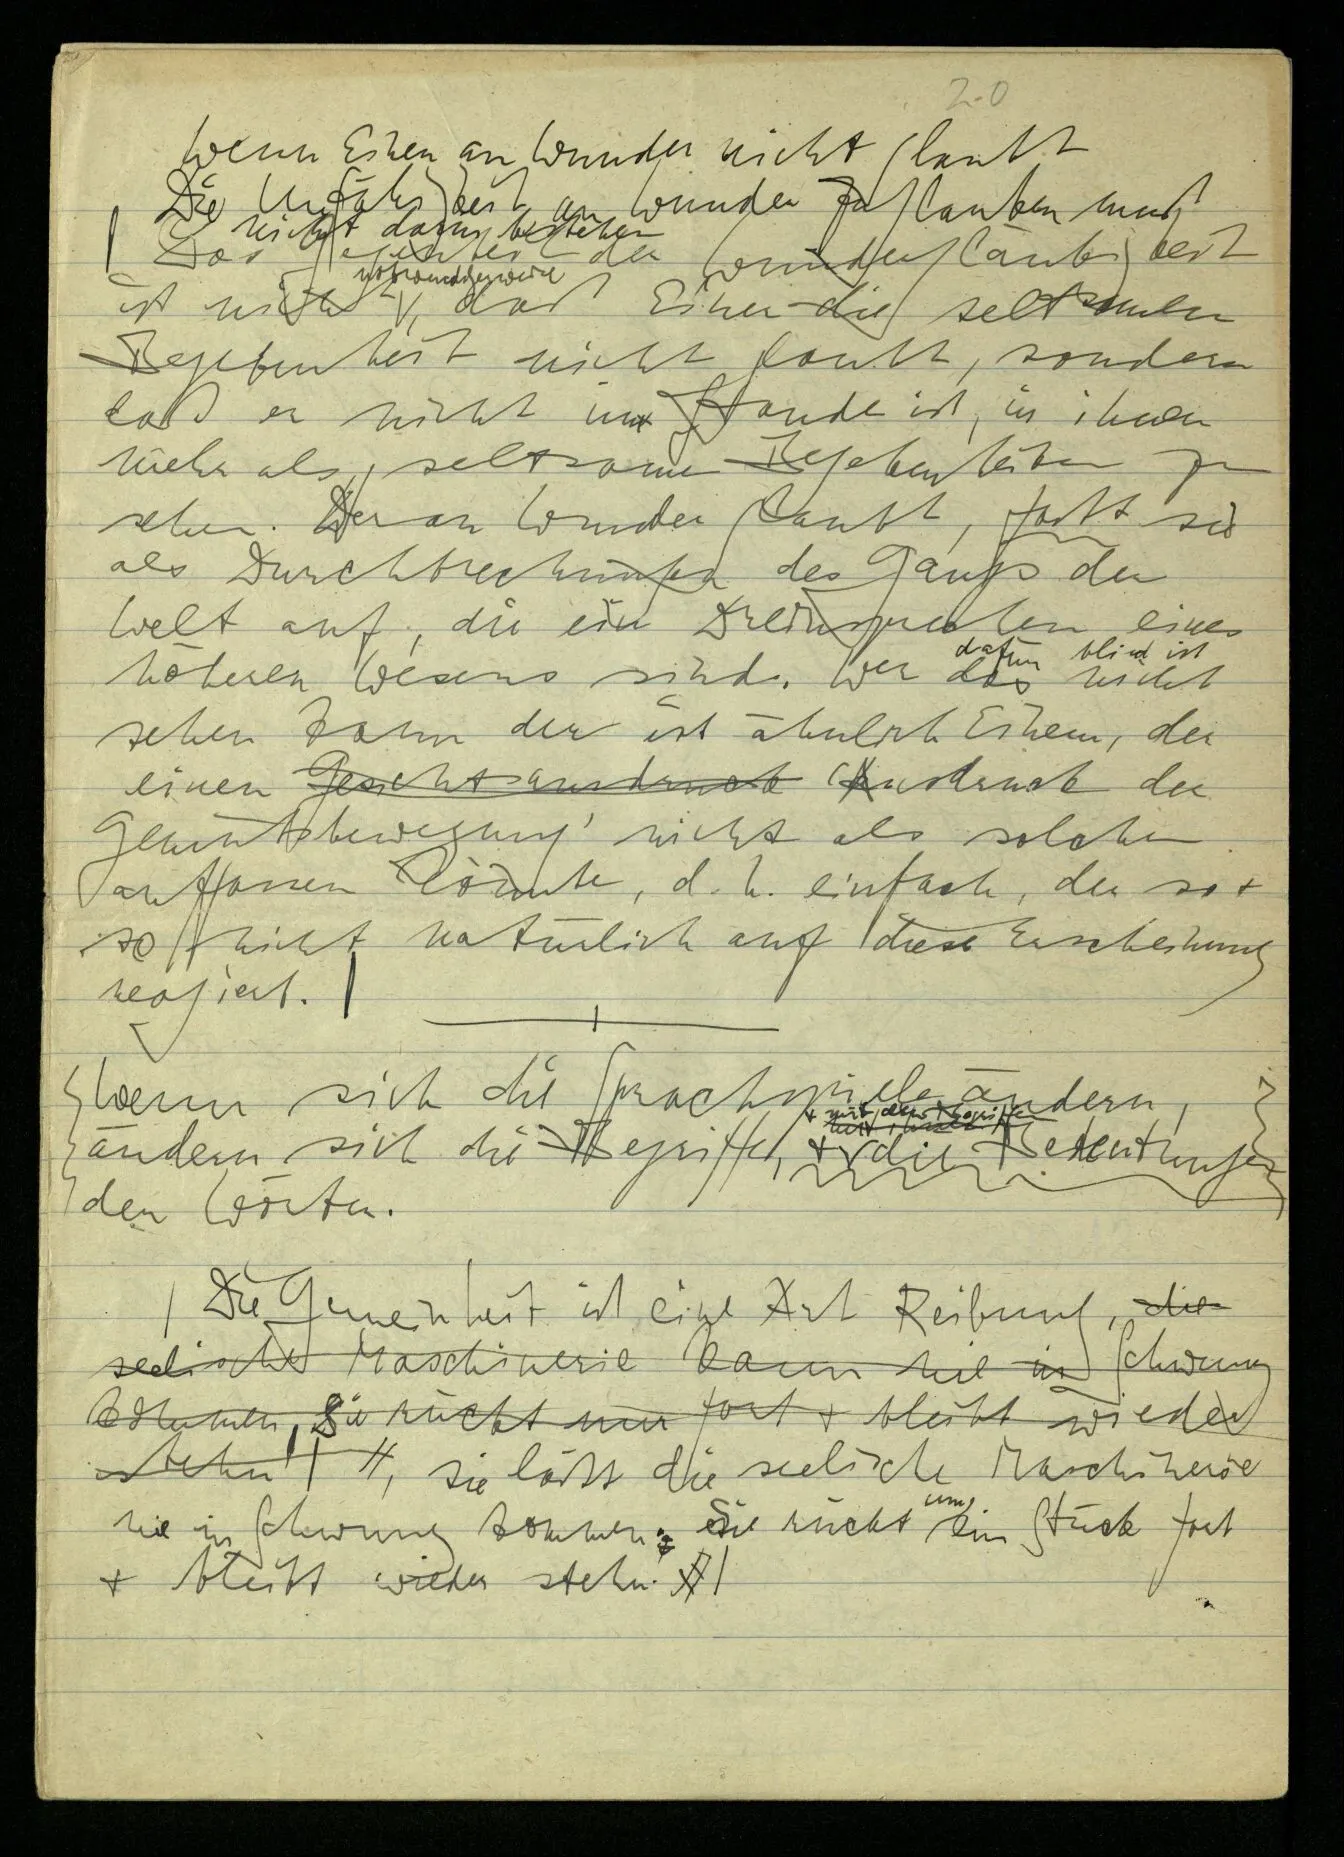 20
Wenn Einer an Wunder nicht glaubt
Die Unfähigkeit an Wunder zu glauben muß
nicht darin bestehen
Das Gegenteil der Wundergläubigkeit
notwendigerweise
ist nicht, daß Einer die seltsamen
Begebenheit nicht glaubt, sondern
daß er nicht im Stande ist, in ihnen
mehr als, seltsame Begebenheiten zu
sehen. Wer an Wunder glaubt, faßt sie
als Durchbrechungen des Gangs der
Welt auf, die ein Dreinsprechen eines
dafür blind ist
höheren Wesens sind. Wer das nicht
sehen kann der ist ähnlich Einem, der
einen Gesichtsausdruck Ausdruck der
Gemütsbewegung' nicht als solchen
auffassen könnte, d.h. einfach, der so +
so nicht natürlich auf diese Erscheinung
reagiert. |
Wenn sich die Sprachspiele ändern,
+ mit den Begriffen
ändern sich die Begriffe, + die Bedeutungen
der Wörter.
| Die Gemeinheit ist eine Art Reibung, die
seelische Maschinerie kann nie in Schwung
kommen, Sie rückt nur fort + bleibt wieder
stehn | //, sie läßt die seelische Maschinerie
nie in Schwung kommen: Sie rückt um ein Stück fort
+ bleibt wieder stehn. |